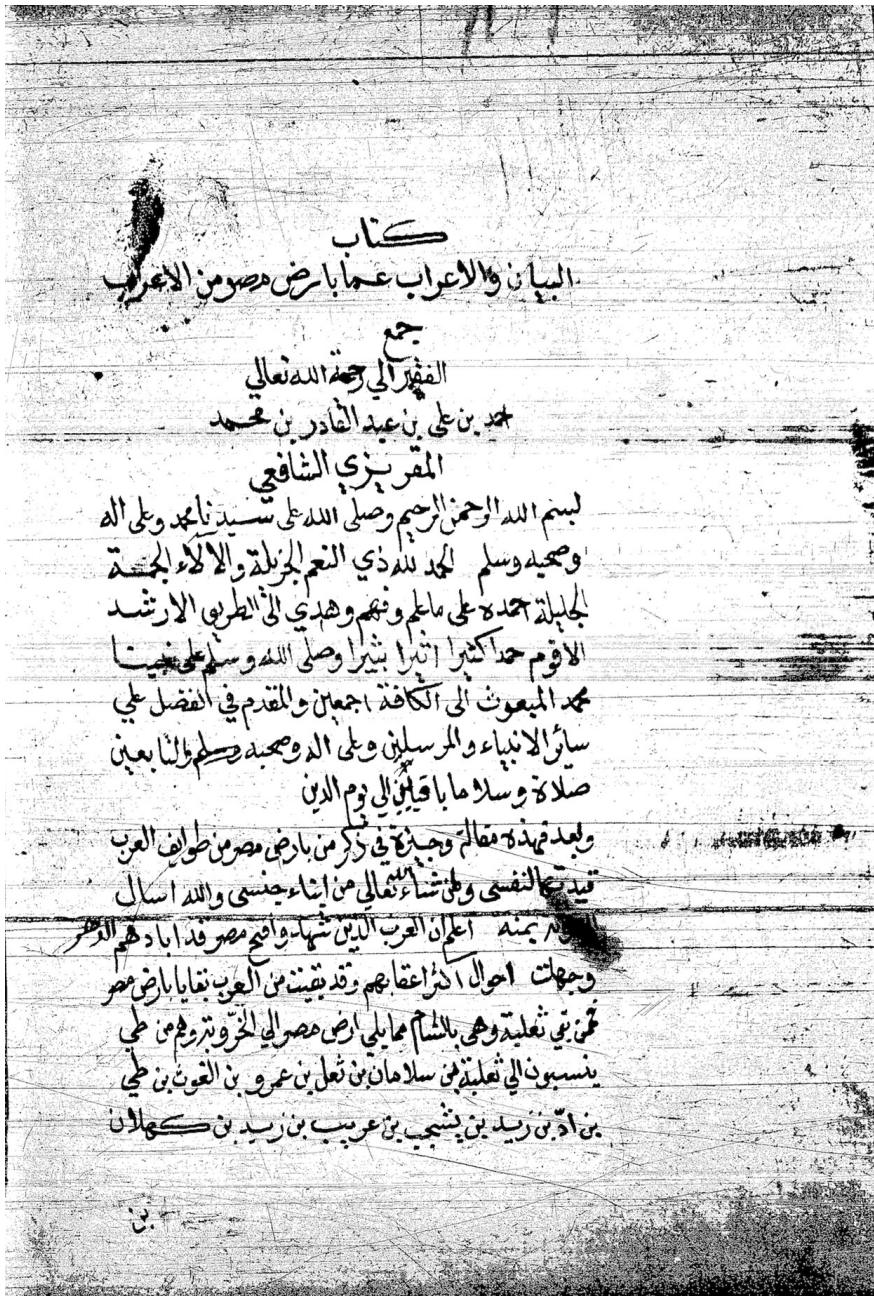 كتاب
البيان والاعراب عما بارض مصر من الاعراب
جمع
الفقير الي رحمة الله تعالي
احمد بن علي بن عبد القادر بن محمد
المقريزي الشافعي
بسم الله الرحمن الرحيم وصلى الله على سيدنا محمد وعلى اله
وصحبه وسلم الحمد لله ذي النعم الجزيلة والالاء الجمة
الجليلة احمده على ما علم وفهم وهدي الى الطريق الارشد
الاقوم حمدا كثيرا اثيرا بثيرا وصلى الله وسلم على نبينا
محمد المبعوث الى الكافة اجمعين والمقدم في الفضل علي
سائر الانبياء والمرسلين وعلى اله وصحبه وسلم والتابعين
صلاة وسلاما باقيين الي يوم الدين
وبعد فهذه مقالة وجيزة في ذكر من بارض مصر من طوايف العرب
قيدتها لنفسى ولمن شاء الله تعالي من ابناء جنسى والله اسال
بمنه اعلم ان العرب الذين شهدوا فتح مصر قد ابادهم الدهر
وجهلت احوال اكثر اعقابهم وقد بقيت من العرب بقايا بارض مصر
فمن بقي ثعلبة وهي بالشام مما يلي ارض مصر الي الخروبة وهم من طي
ينسبون الي ثعلبة بن سلامان بن ثعل بن عمرو بن الغوث بن طي
بن ادّ بن زيد بن يشجب بن عريب بن زيد بن كهلان
بن